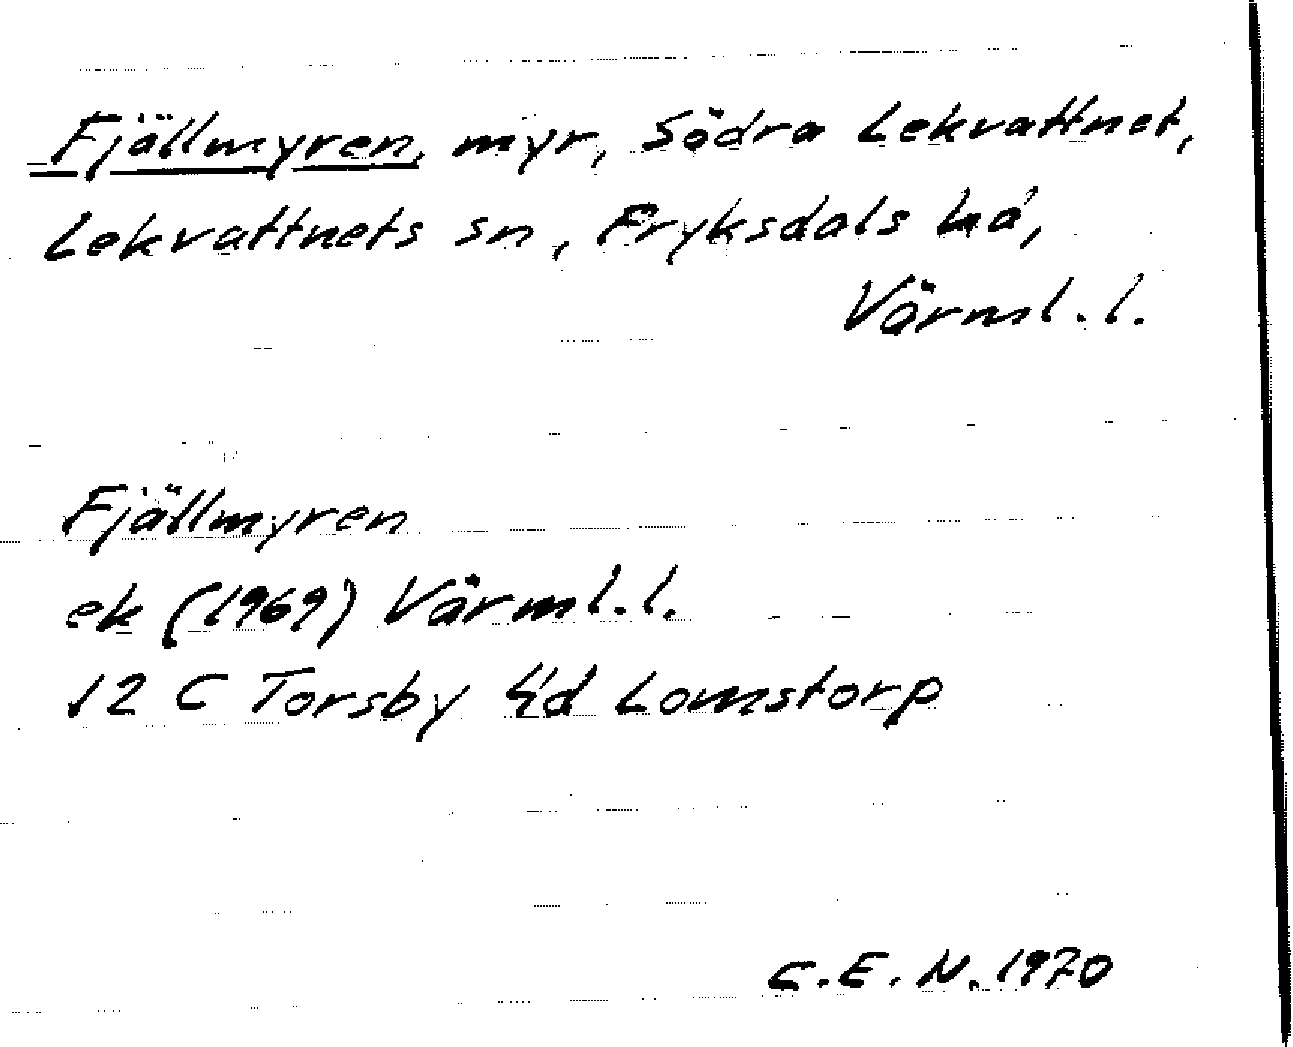 Fjällmyren, myr, Södra Lekvattnet,
Lekvattnets sn, Fryksdals hd,
Värml. l.
Fjällmyren
ek (1969) Värml. l.
12 C Torsby 4d Lomstorp
C.E.N. 1970